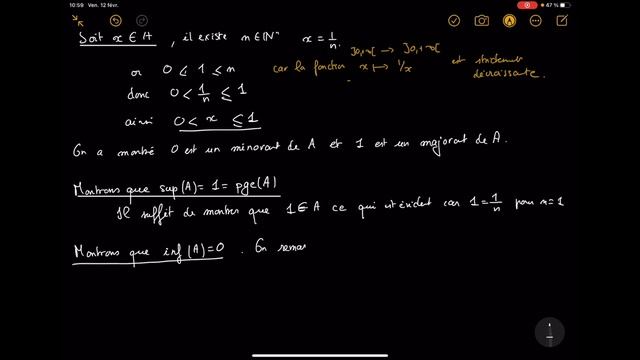 10:59 Ven. 12 févr.
47 %
Soit x ∈ A, il existe n ∈ ℕ* x = 1/n.
or 0 < 1 ≤ n car la fonction ]0,+∞[ → ]0,+∞[ x ↦ 1/x est strictement décroissante.
donc 0 < 1/n ≤ 1
ainsi 0 < x ≤ 1
On a montré 0 est un minorant de A et 1 est un majorant de A.
Montrons que sup(A) = 1 = pge(A)
Il suffit de montrer que 1 ∈ A ce qui est évident car 1 = 1/n pour n = 1
Montrons que inf(A) = 0. On remar